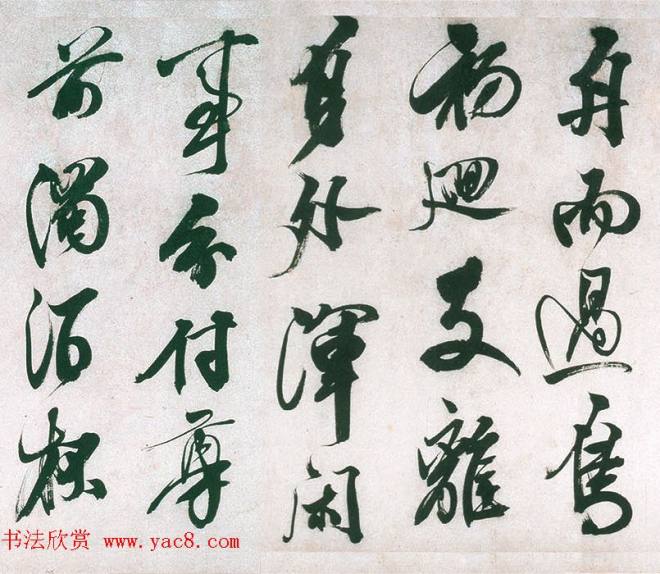 舟雨過
初迴支離
身外渾閑
事分付尊
前濁酒杯
书法欣赏 www.yac8.com